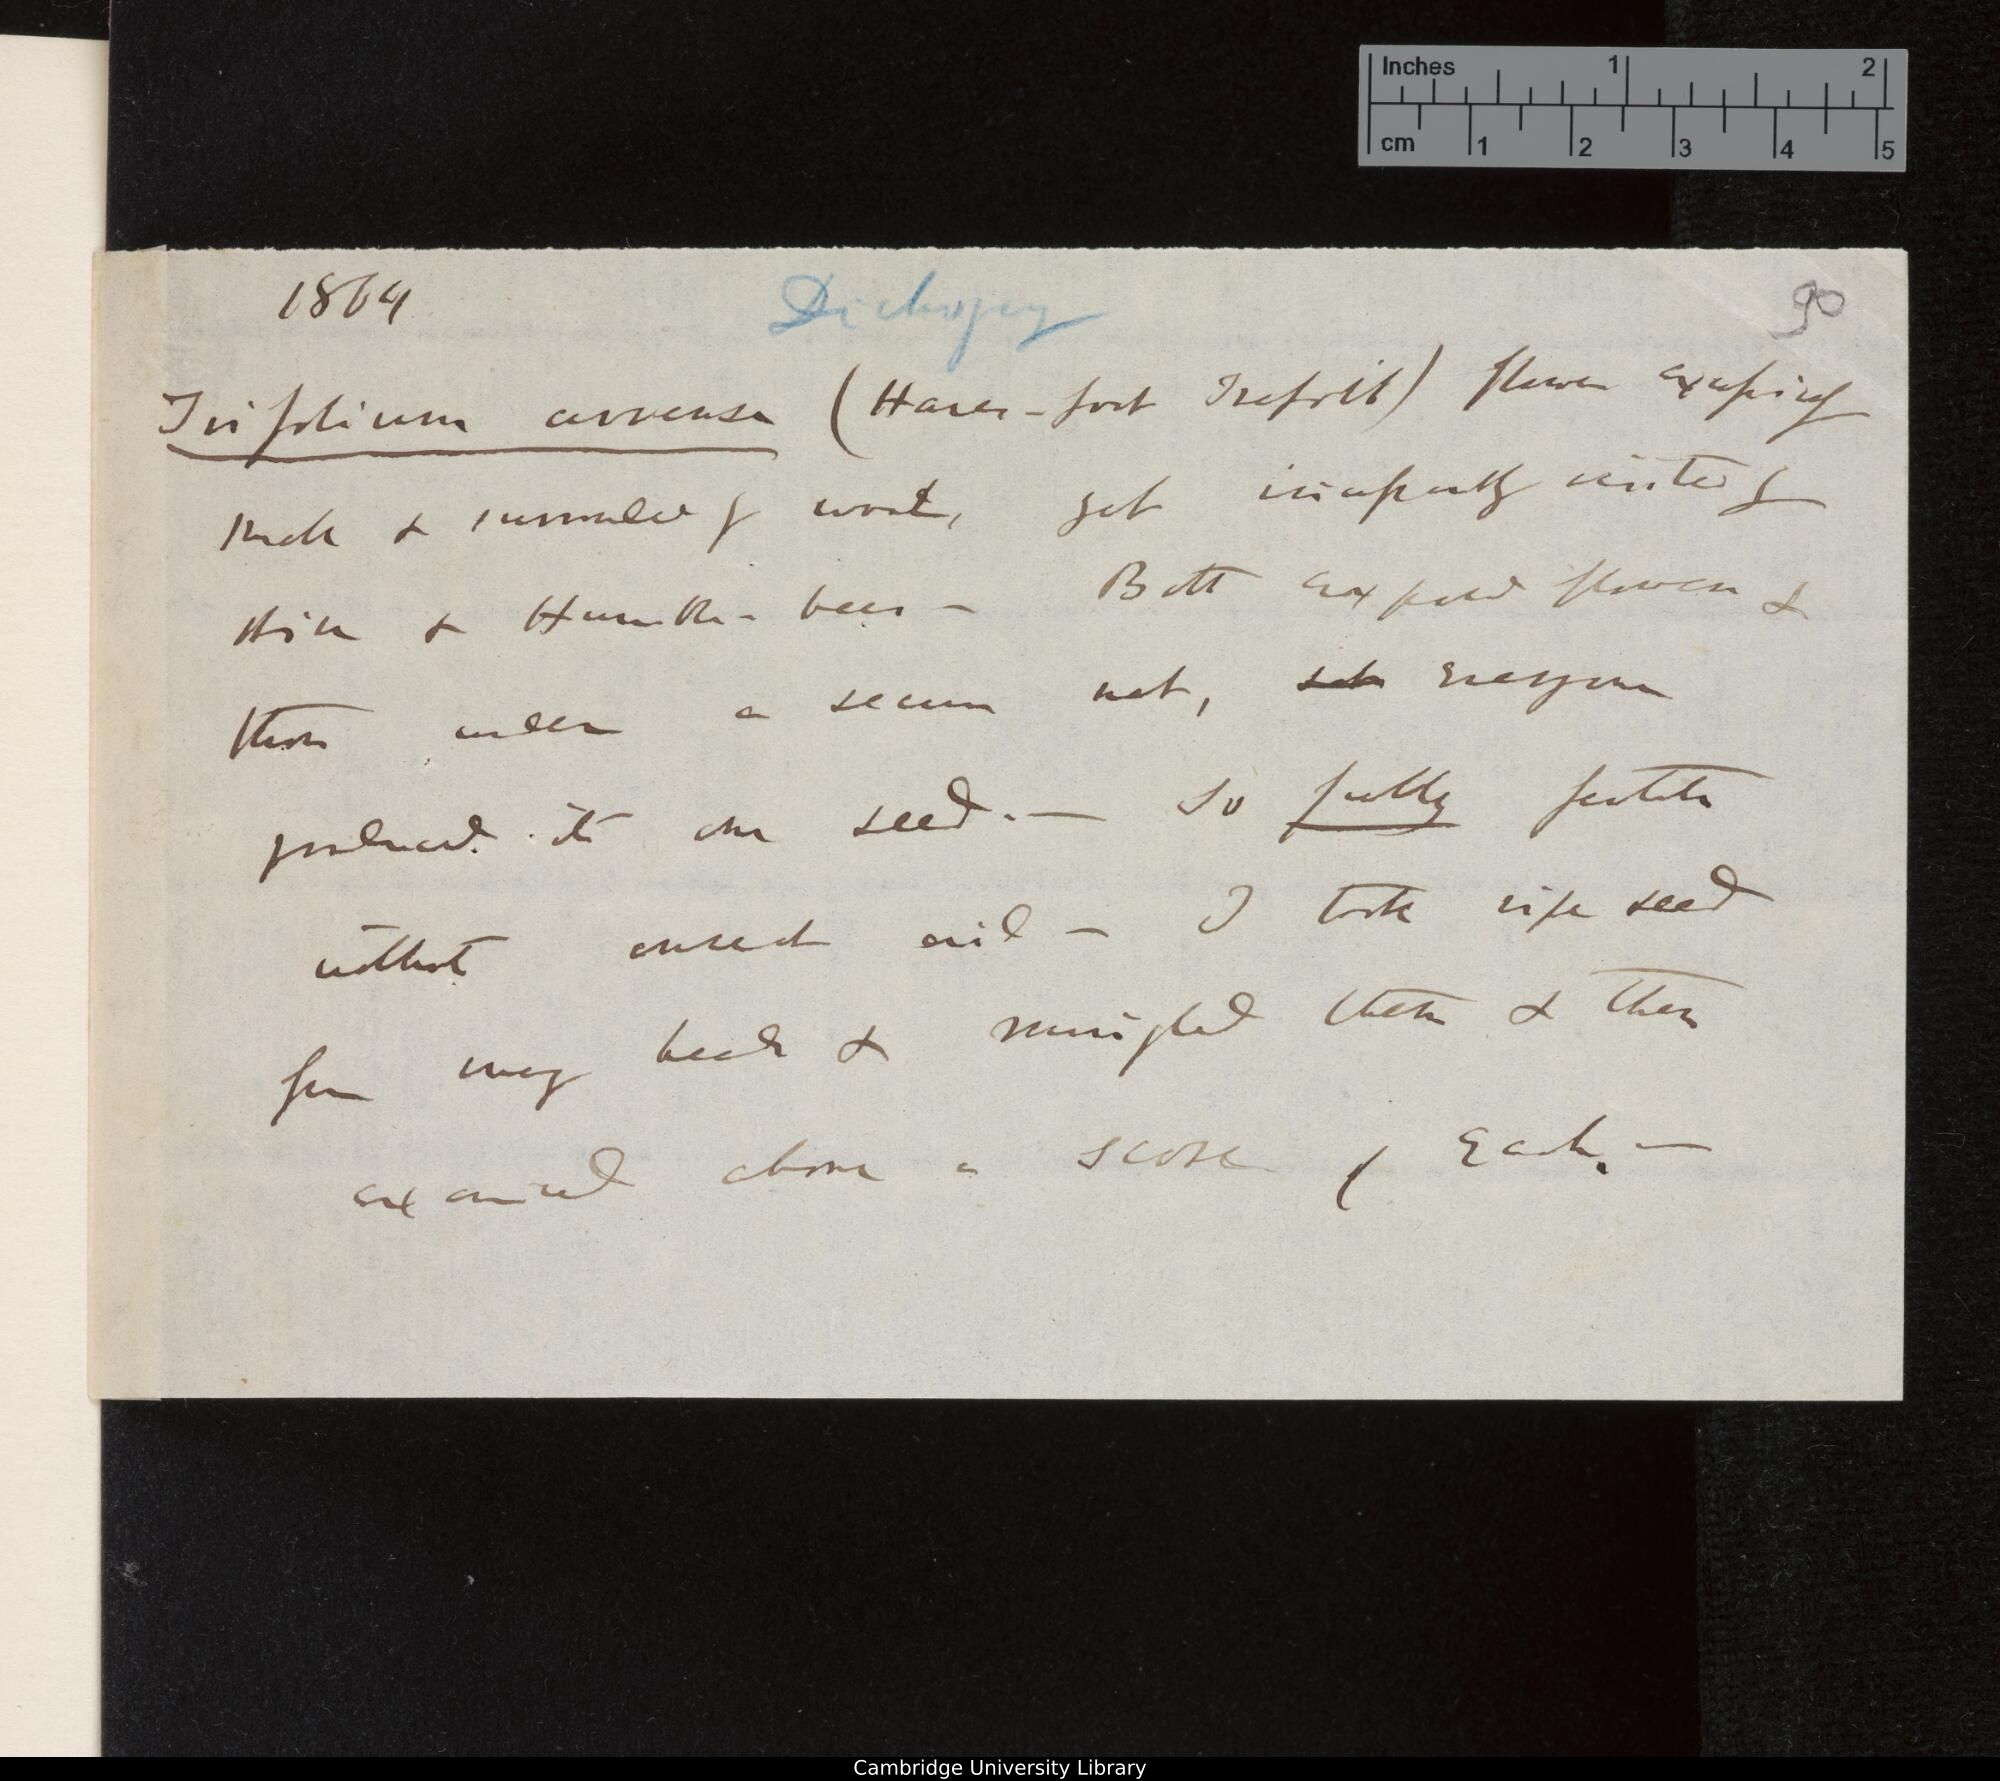 Inches 1 2
cm 1 2 3 4 5
1864 Dichogamy 90
Trifolium arvense (Hares-foot Trefoil) flower excessively
small & surrounded by wool, yet incessantly visited by
Hive & Humble-bees — Both exposed flowers &
those under a secure net, set everyone
produced its one seed. — So fully fertile
without insect aid — I took ripe seed
from many heads & mingled them & then
examined above a score of each. —
Cambridge University Library